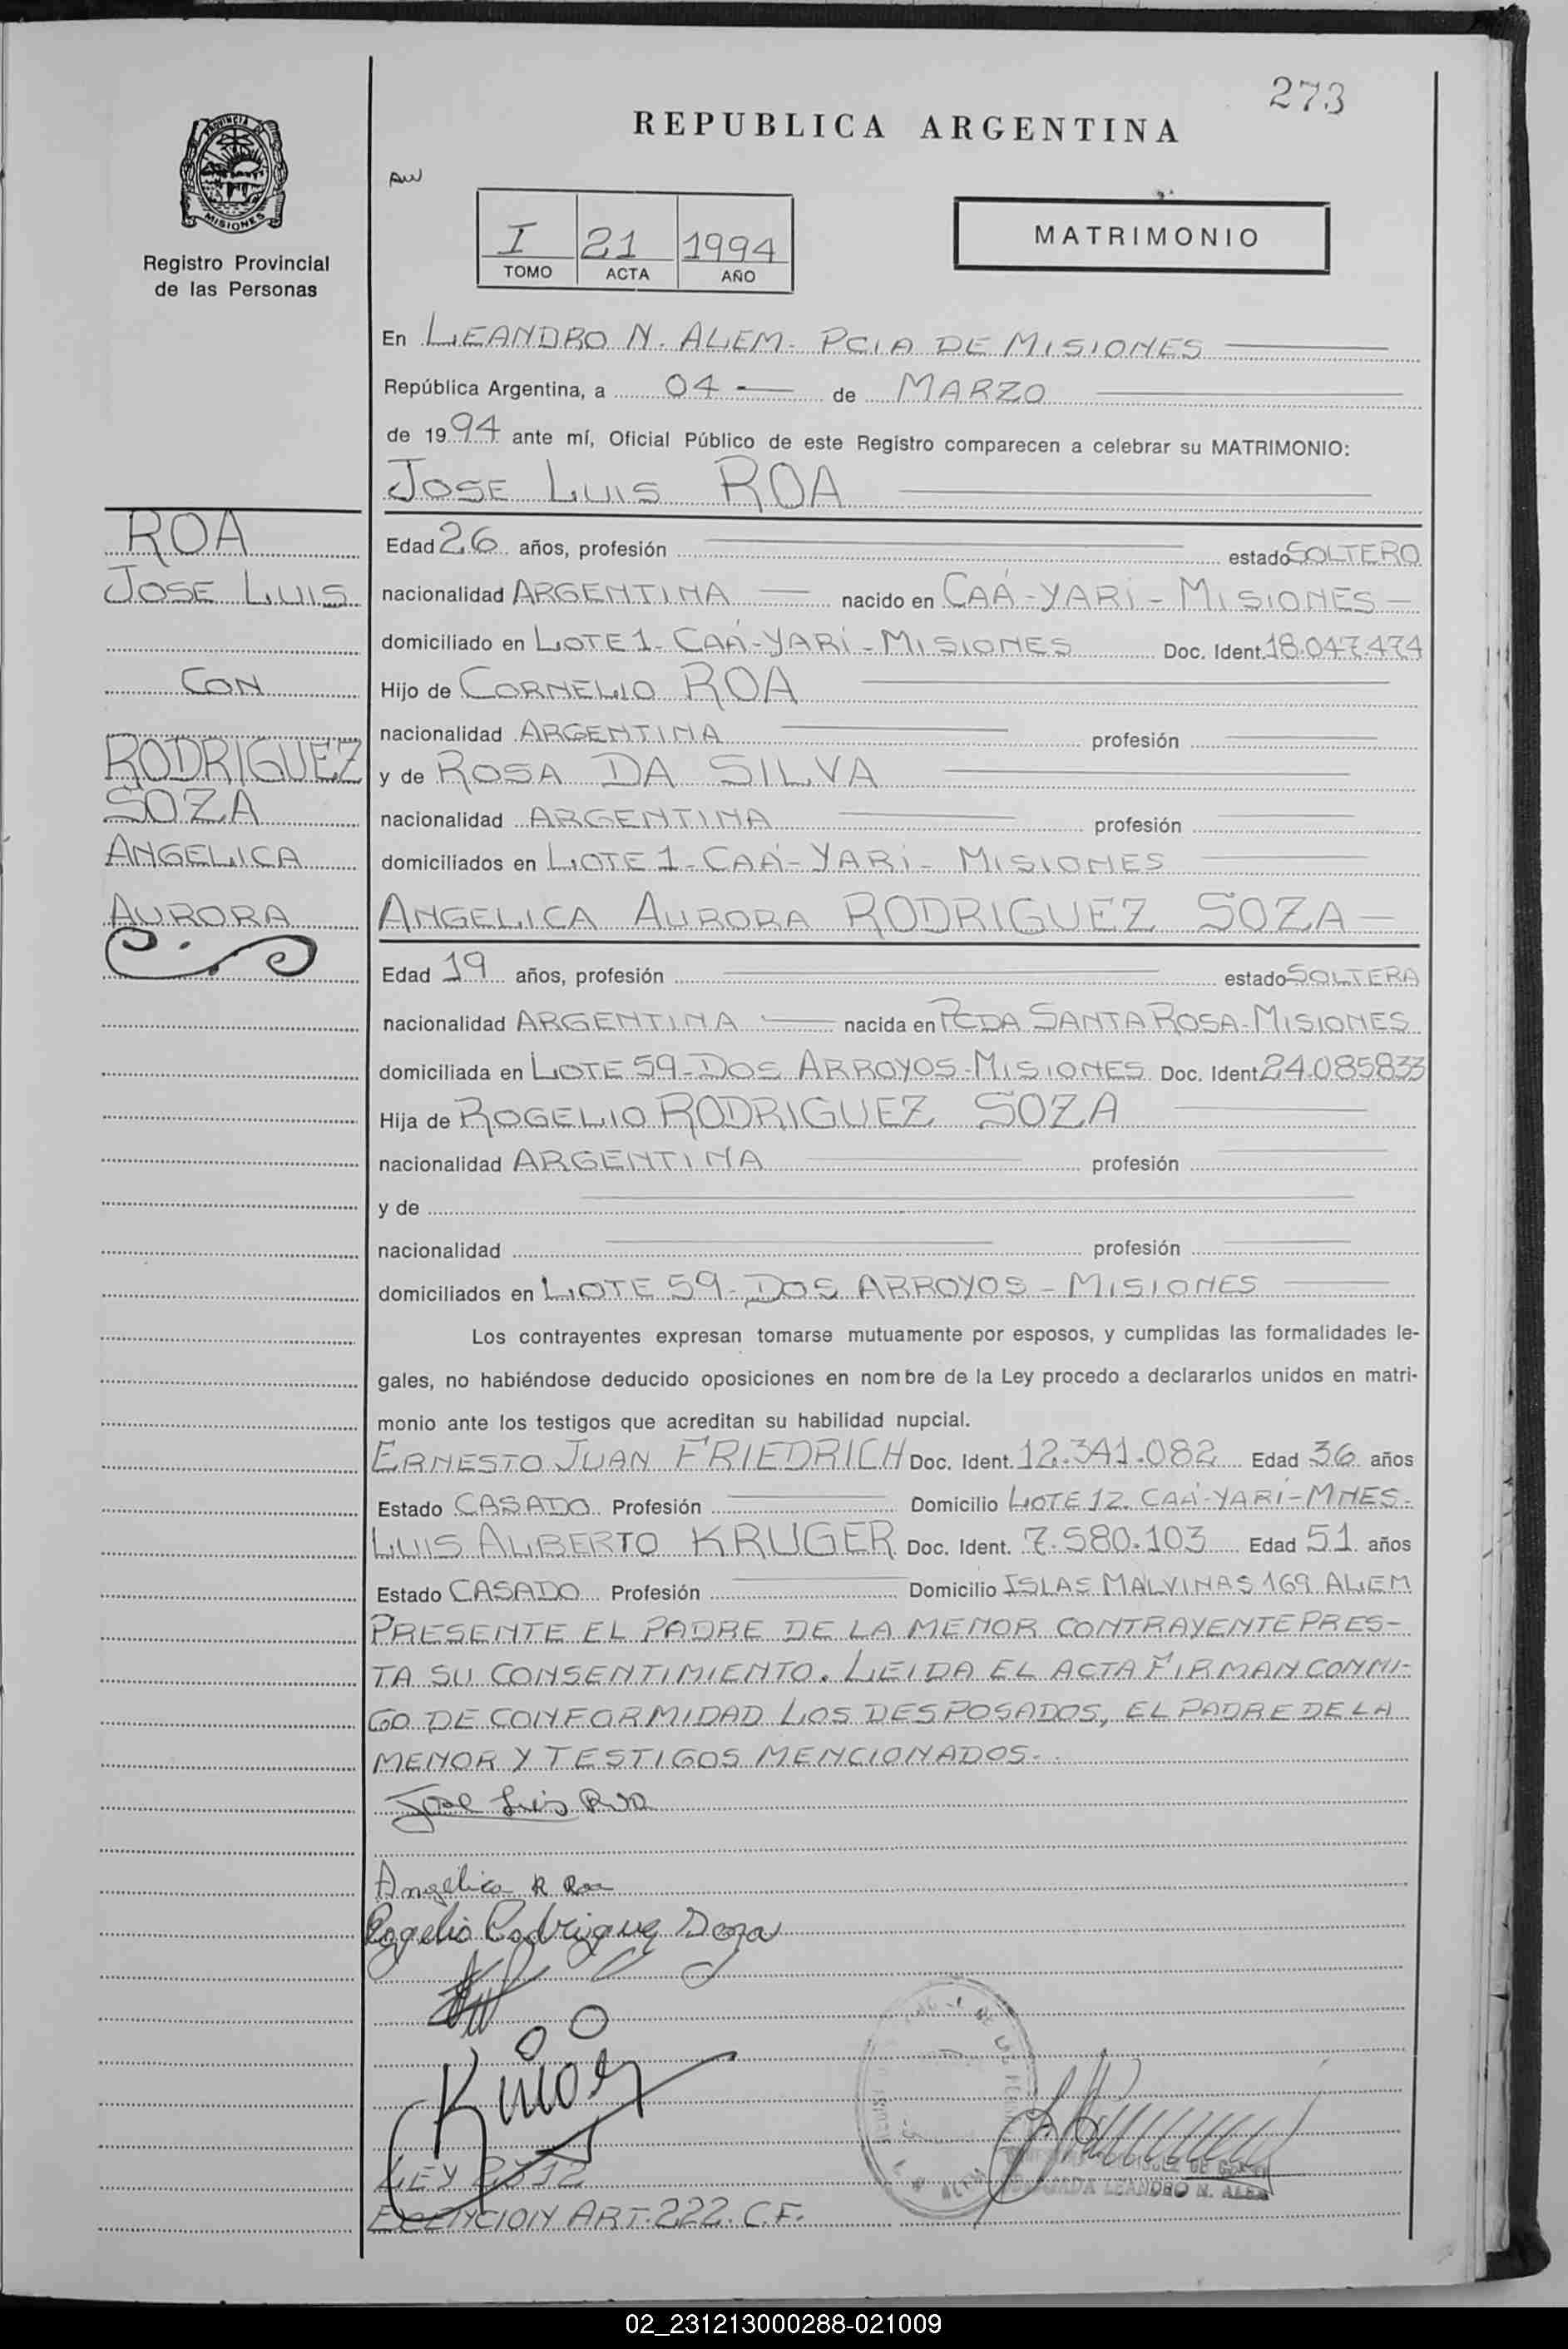 273
REPUBLICA ARGENTINA
PROVINCIA DE
MISIONES
Registro Provincial
de las Personas
AW
I 21 1994
TOMO ACTA AÑO
MATRIMONIO
En LEANDRO N. ALEM - PCIA DE MISIONES
República Argentina, a 04 - de MARZO
de 1994 ante mí, Oficial Público de este Registro comparecen a celebrar su MATRIMONIO:
JOSE LUIS ROA
ROA
JOSE LUIS
CON
RODRIGUEZ
SOZA
ANGELICA
AURORA
Edad 26 años, profesión estado SOLTERO
nacionalidad ARGENTINA nacido en CAÁ-YARÍ - MISIONES -
domiciliado en LOTE 1 - CAÁ-YARÍ - MISIONES Doc. Ident. 18.047.474
Hijo de CORNELIO ROA
nacionalidad ARGENTINA profesión
y de ROSA DA SILVA
nacionalidad ARGENTINA profesión
domiciliados en LOTE 1 - CAÁ-YARÍ - MISIONES
ANGELICA AURORA RODRIGUEZ SOZA -
Edad 19 años, profesión estado SOLTERA
nacionalidad ARGENTINA nacida en PCDA SANTA ROSA - MISIONES
domiciliada en LOTE 59 - DOS ARROYOS - MISIONES Doc. Ident. 24.085833
Hija de ROGELIO RODRIGUEZ SOZA
nacionalidad ARGENTINA profesión
y de
nacionalidad profesión
domiciliados en LOTE 59 - DOS ARROYOS - MISIONES
Los contrayentes expresan tomarse mutuamente por esposos, y cumplidas las formalidades le-
gales, no habiéndose deducido oposiciones en nombre de la Ley procedo a declararlos unidos en matri-
monio ante los testigos que acreditan su habilidad nupcial.
ERNESTO JUAN FRIEDRICH Doc. Ident. 12.341.082 Edad 36 años
Estado CASADO Profesión Domicilio LOTE 12 CAÁ-YARÍ - MNES -
LUIS ALBERTO KRUGER Doc. Ident. 7.580.103 Edad 51 años
Estado CASADO Profesión Domicilio ISLAS MALVINAS 169 ALEM
PRESENTE EL PADRE DE LA MENOR CONTRAYENTE PRES-
TA SU CONSENTIMIENTO. LEIDA EL ACTA FIRMAN CONMI-
GO DE CONFORMIDAD LOS DESPOSADOS, EL PADRE DE LA
MENOR Y TESTIGOS MENCIONADOS.
Jose Luis Roa
Angélica R Roa
Rogelio Rodriguez Soza
LEY 2312
EXENCION ART. 222. C.F.
LEANDRO N. ALEM
02_231213000288-021009